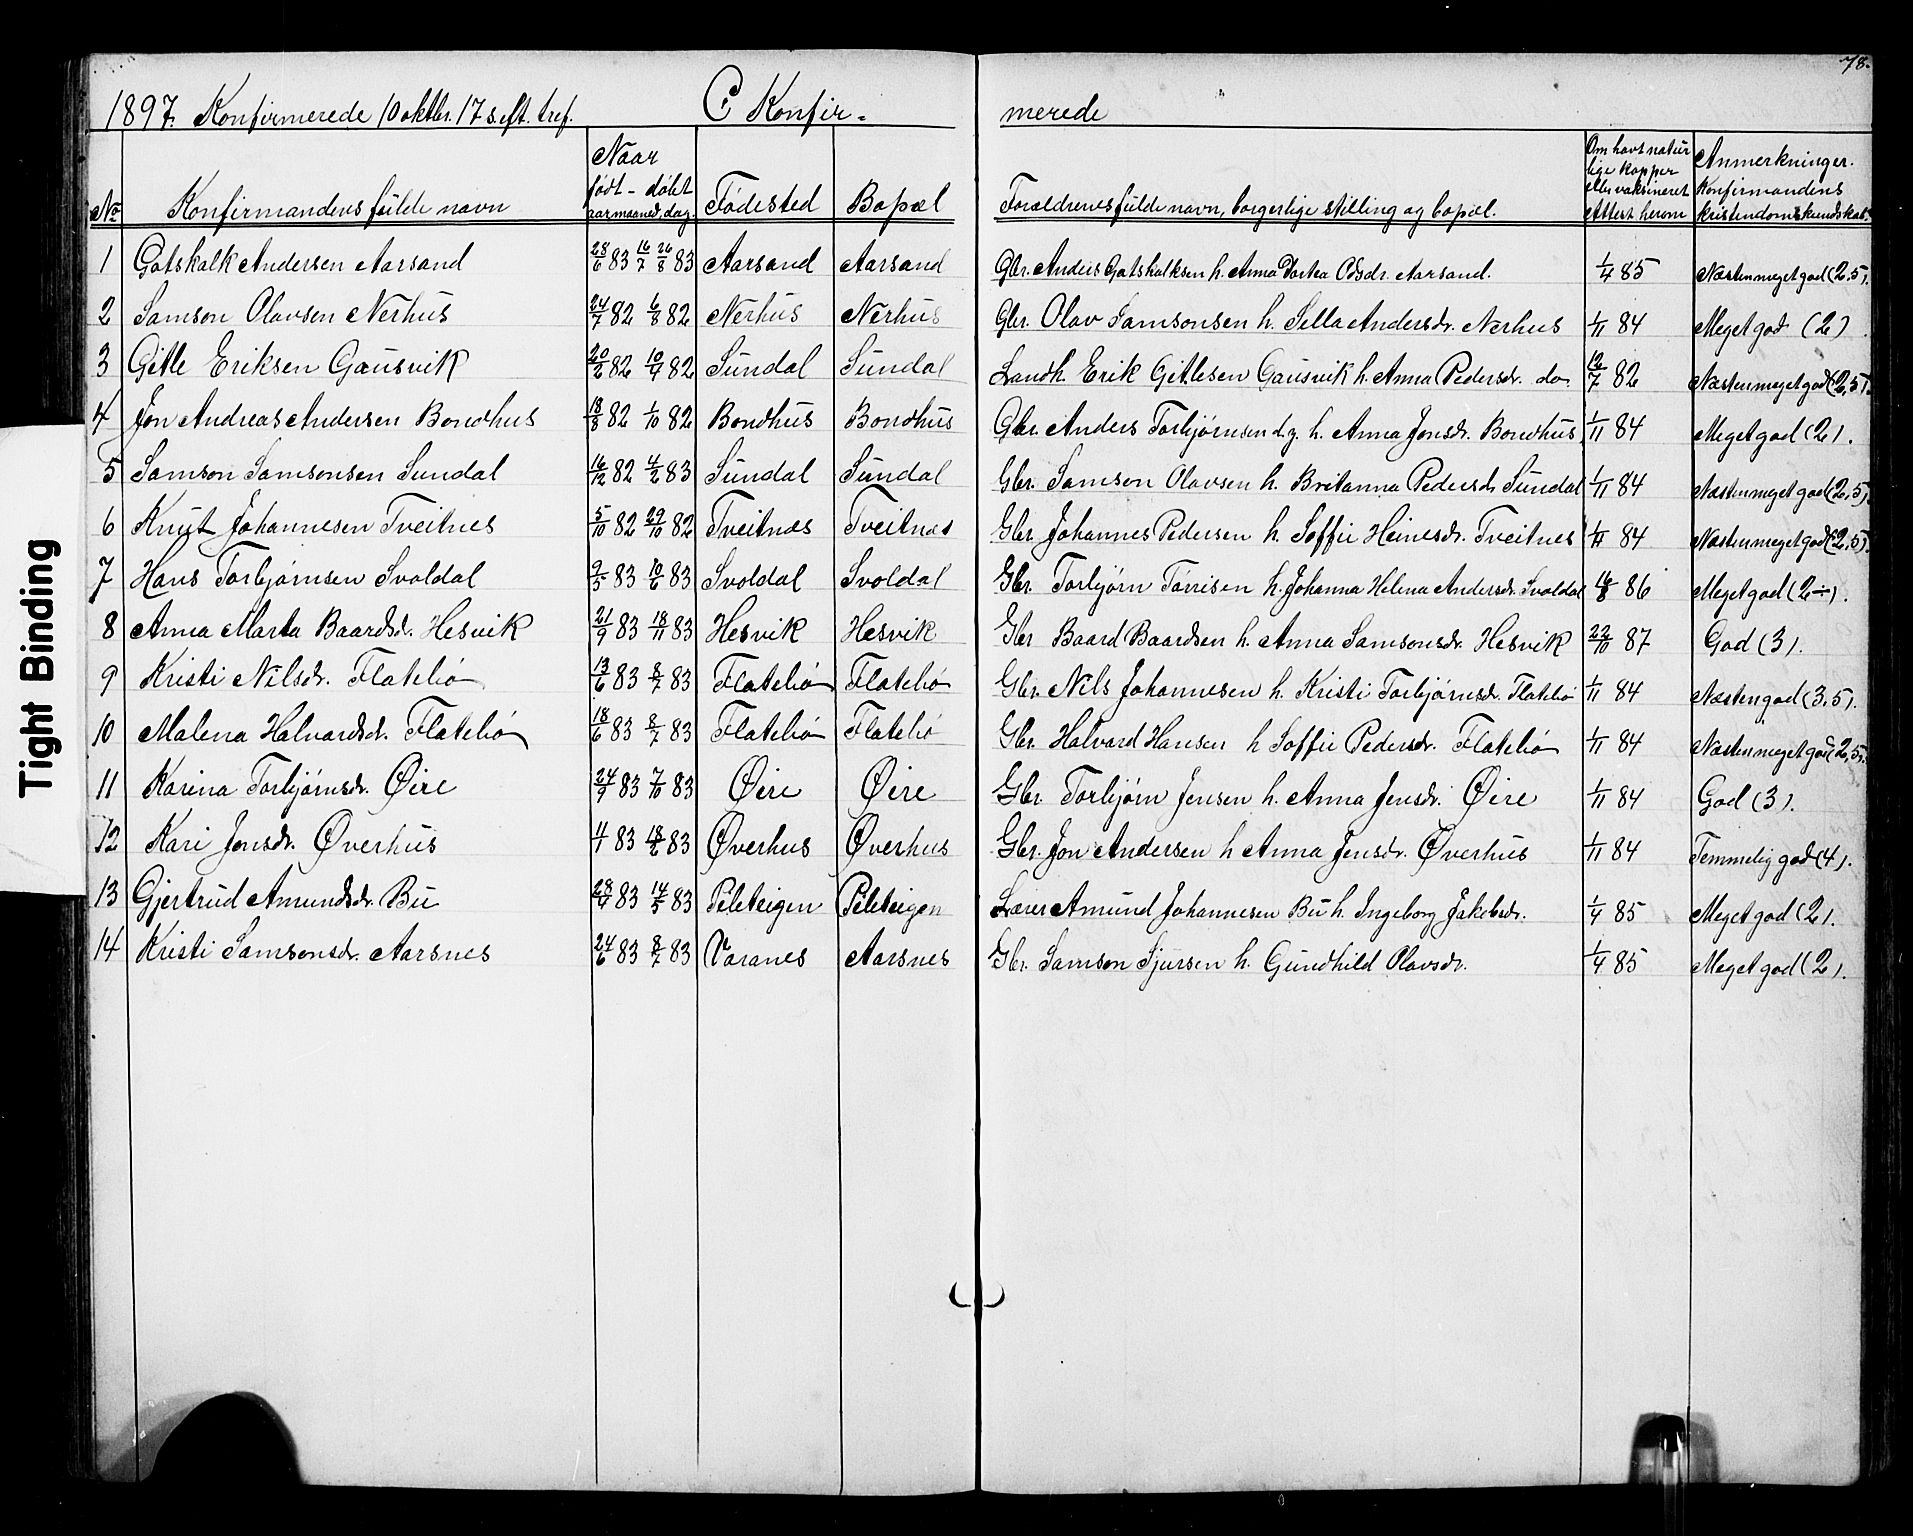 78.
1897. Konfirmerede 10 oktbr. 17 s. eft. tref. C Konfir- merede
No Konfirmandens fulde navn Naar født - døbt aar maaned, dag. Fødested Bopæl Forældrenes fulde navn, borgerlige stilling og bopæl. Om havt naturlige kopper eller vaksineret attest herom Anmerkninger. Konfirmandens kristendomskundskab.
1 Gotskalk Andersen Aarsand 28/6 83 16/7 26/8 83 Aarsand Aarsand Gbr. Anders Gotskalksen h. Anna Dortea Odsdr. Aarsand. 1/4 85 Næsten meget god (2,5).
2 Samson Olavsen Nerhus 24/7 82 6/8 82 Nerhus Nerhus Gbr. Olav Samsonsen h. Sella Andersdr. Nerhus 1/11 84 Meget god (2).
3 Gitle Eriksen Gausvik 20/2 82 10/4 82 Sundal Sundal Landh. Erik Gitlesen Gausvik h. Anna Pedersdr. do 12/7 82 Næsten meget god (2,5).
4 Jon Andreas Andersen Bondhus 18/8 82 1/10 82 Bondhus Bondhus Gbr. Anders Torbjørnsen d.y. h. Anna Jonsdr. Bondhus 1/11 84 Meget god (2).
5 Samson Samsonsen Sundal 16/12 82 4/2 83 Sundal Sundal Gbr. Samson Olavsen h. Britanna Pedersdr Sundal 1/11 84 Næsten meget god (2,5).
6 Knut Johannesen Tveitnes 5/10 82 29/10 82 Tveitnes Tveitnes Gbr. Johannes Pedersen h. Soffie Heinesdr. Tveitnes 1/11 84 Næsten meget god (2,5).
7 Hans Torbjørnsen Svoldal 9/5 83 10/6 83 Svoldal Svoldal Gbr. Torbjørn Tørrisen h. Johanna Helena Andersdr. Svoldal 16/8 86 Meget god (2÷).
8 Anna Marta Baardsdr. Hesvik 21/9 83 18/11 83 Hesvik Hesvik Gbr Baard Baardsen h. Anna Samsonsdr. Hesvik 22/10 87 God (3).
9 Kristi Nilsdr. Flatebø 13/6 83 8/7 83 Flatebø Flatebø Gbr. Nils Johannesen h. Kristi Torbjørnsdr. Flatebø 1/11 84 Næsten god (3,5).
10 Malena Halvardsdr. Flatebø 18/6 83 8/7 83 Flatebø Flatebø Gbr. Halvard Hansen h Soffie Pedersdr. Flatebø 1/11 84 Næsten meget god (2,5).
11 Karina Torbjørnsdr. Øire 24/9 83 7/10 83 Øire Øire Gbr. Torbjørn Jensen h. Anna Jensdr. Øire 1/11 84 God (3).
12 Kari Jonsdr. Øverhus 4/1 83 18/2 83 Øverhus Øverhus Gbr. Jon Andersen h Anna Jensdr. Øverhus 1/11 84 Temmelig god (4).
13 Gjertrud Amundsdr. Bu 28/4 83 14/5 83 Peleteigen Peleteigen Lærer Amund Johannesen Bu h. Ingeborg Jakobsdr. 1/4 85 Meget god (2).
14 Kristi Samsonsdr. Aarsnes 24/6 83 8/7 83 Varanes Aarsnes Gbr. Samson Sjursen h. Gundhild Olavsdr. 1/4 85 Meget god (2).
Tight Binding